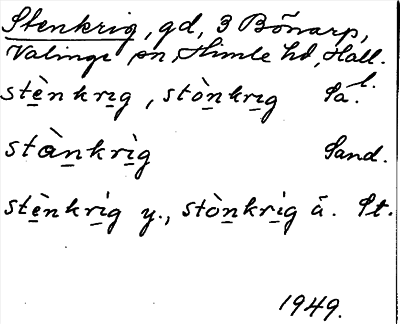 Stenkrig, gd, 3 Bönarp,
Valinge sn, Himle hd, Hall.
stènkrig, stònkrig Så.l.
stànkrìg Sand.
stènkrìg y., stònkrìg ä. St.
1949.